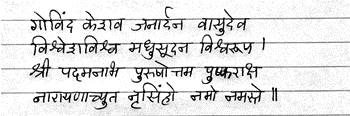 गोविंद केशव जनार्दन वासुदेव
विश्वेशविश्व मधुसूदन विश्वरूप ।
श्री पद्मनाभ पुरुषोत्तम पुष्कराक्ष
नारायणाच्युत नृसिंहो नमो नमस्ते ॥